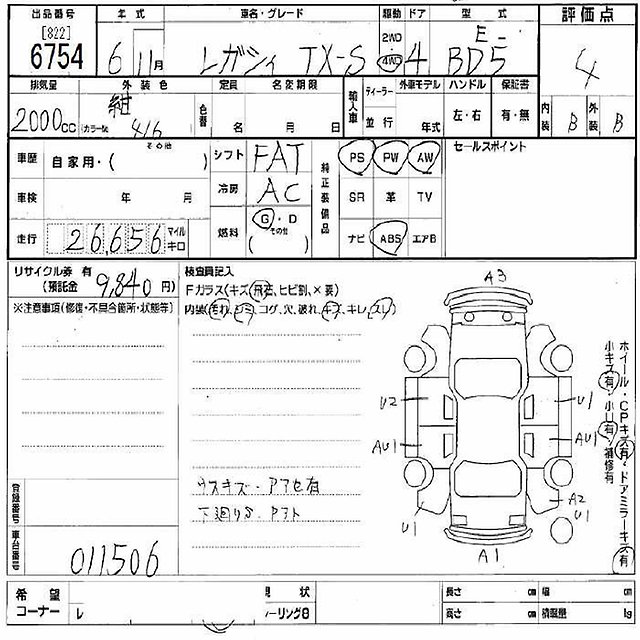 出品番号 年式 車名・グレード 駆動 ドア 型式 評価点
[822]
6754 6 11月 レガシィ TX-S 2WD 4WD 4 E- BD5 4
排気量 外装色 定員 名変期限 輸入車 ディーラー 外車モデル ハンドル 保証書 内装 外装
2000cc 紺 カラーNo. 416 色替 名 月 日 並行 年式 左・右 有・無 B B
車歴 自家用・( その他 ) シフト FAT 純正装備品 PS PW AW セールスポイント
車検 年 月 冷房 AC SR 革 TV
走行 26,656 マイル キロ 燃料 G・D (その他) ナビ ABS エアB
リサイクル券 有 (預託金 9,840 円) 検査員記入
Fガラス(キズ,飛石,ヒビ割,×要)
※注意事項(修復・不具合箇所・状態等) 内装(汚れ,シミ,コゲ,穴,破れ,キズ,キレ,スレ)
A3
U2 U1
AU1 AU1
A2
U1 U1
A1
ホイール・CPキズ有・ドアミラーキズ有
小キズ有・小U有・補修有
ウスキズ・アセ有
下廻りS.
登録番号
車台番号 011506
希望コーナー レ 現状 長さ cm 幅 cm
ーリング8 高さ cm 積載量 kg